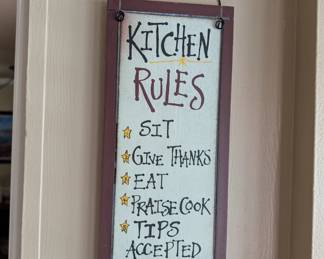 KITCHEN
RULES
SIT
GIVE THANKS
EAT
PRAISE COOK
TIPS
ACCEPTED